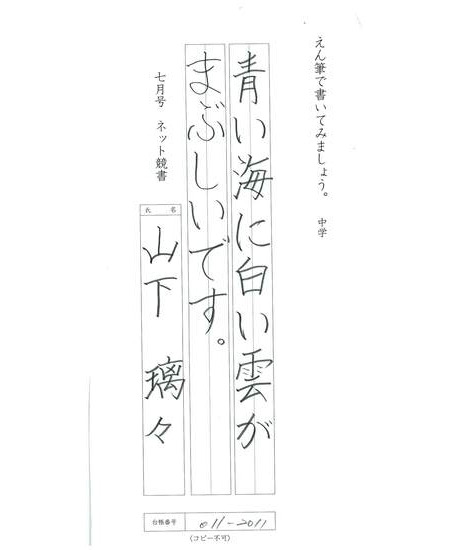 えん筆で書いてみましょう。 中学
青い海に白い雲が
まぶしいです。
七月号 ネット競書
氏名
山下 璃々
台帳番号 011-2011
(コピー不可)